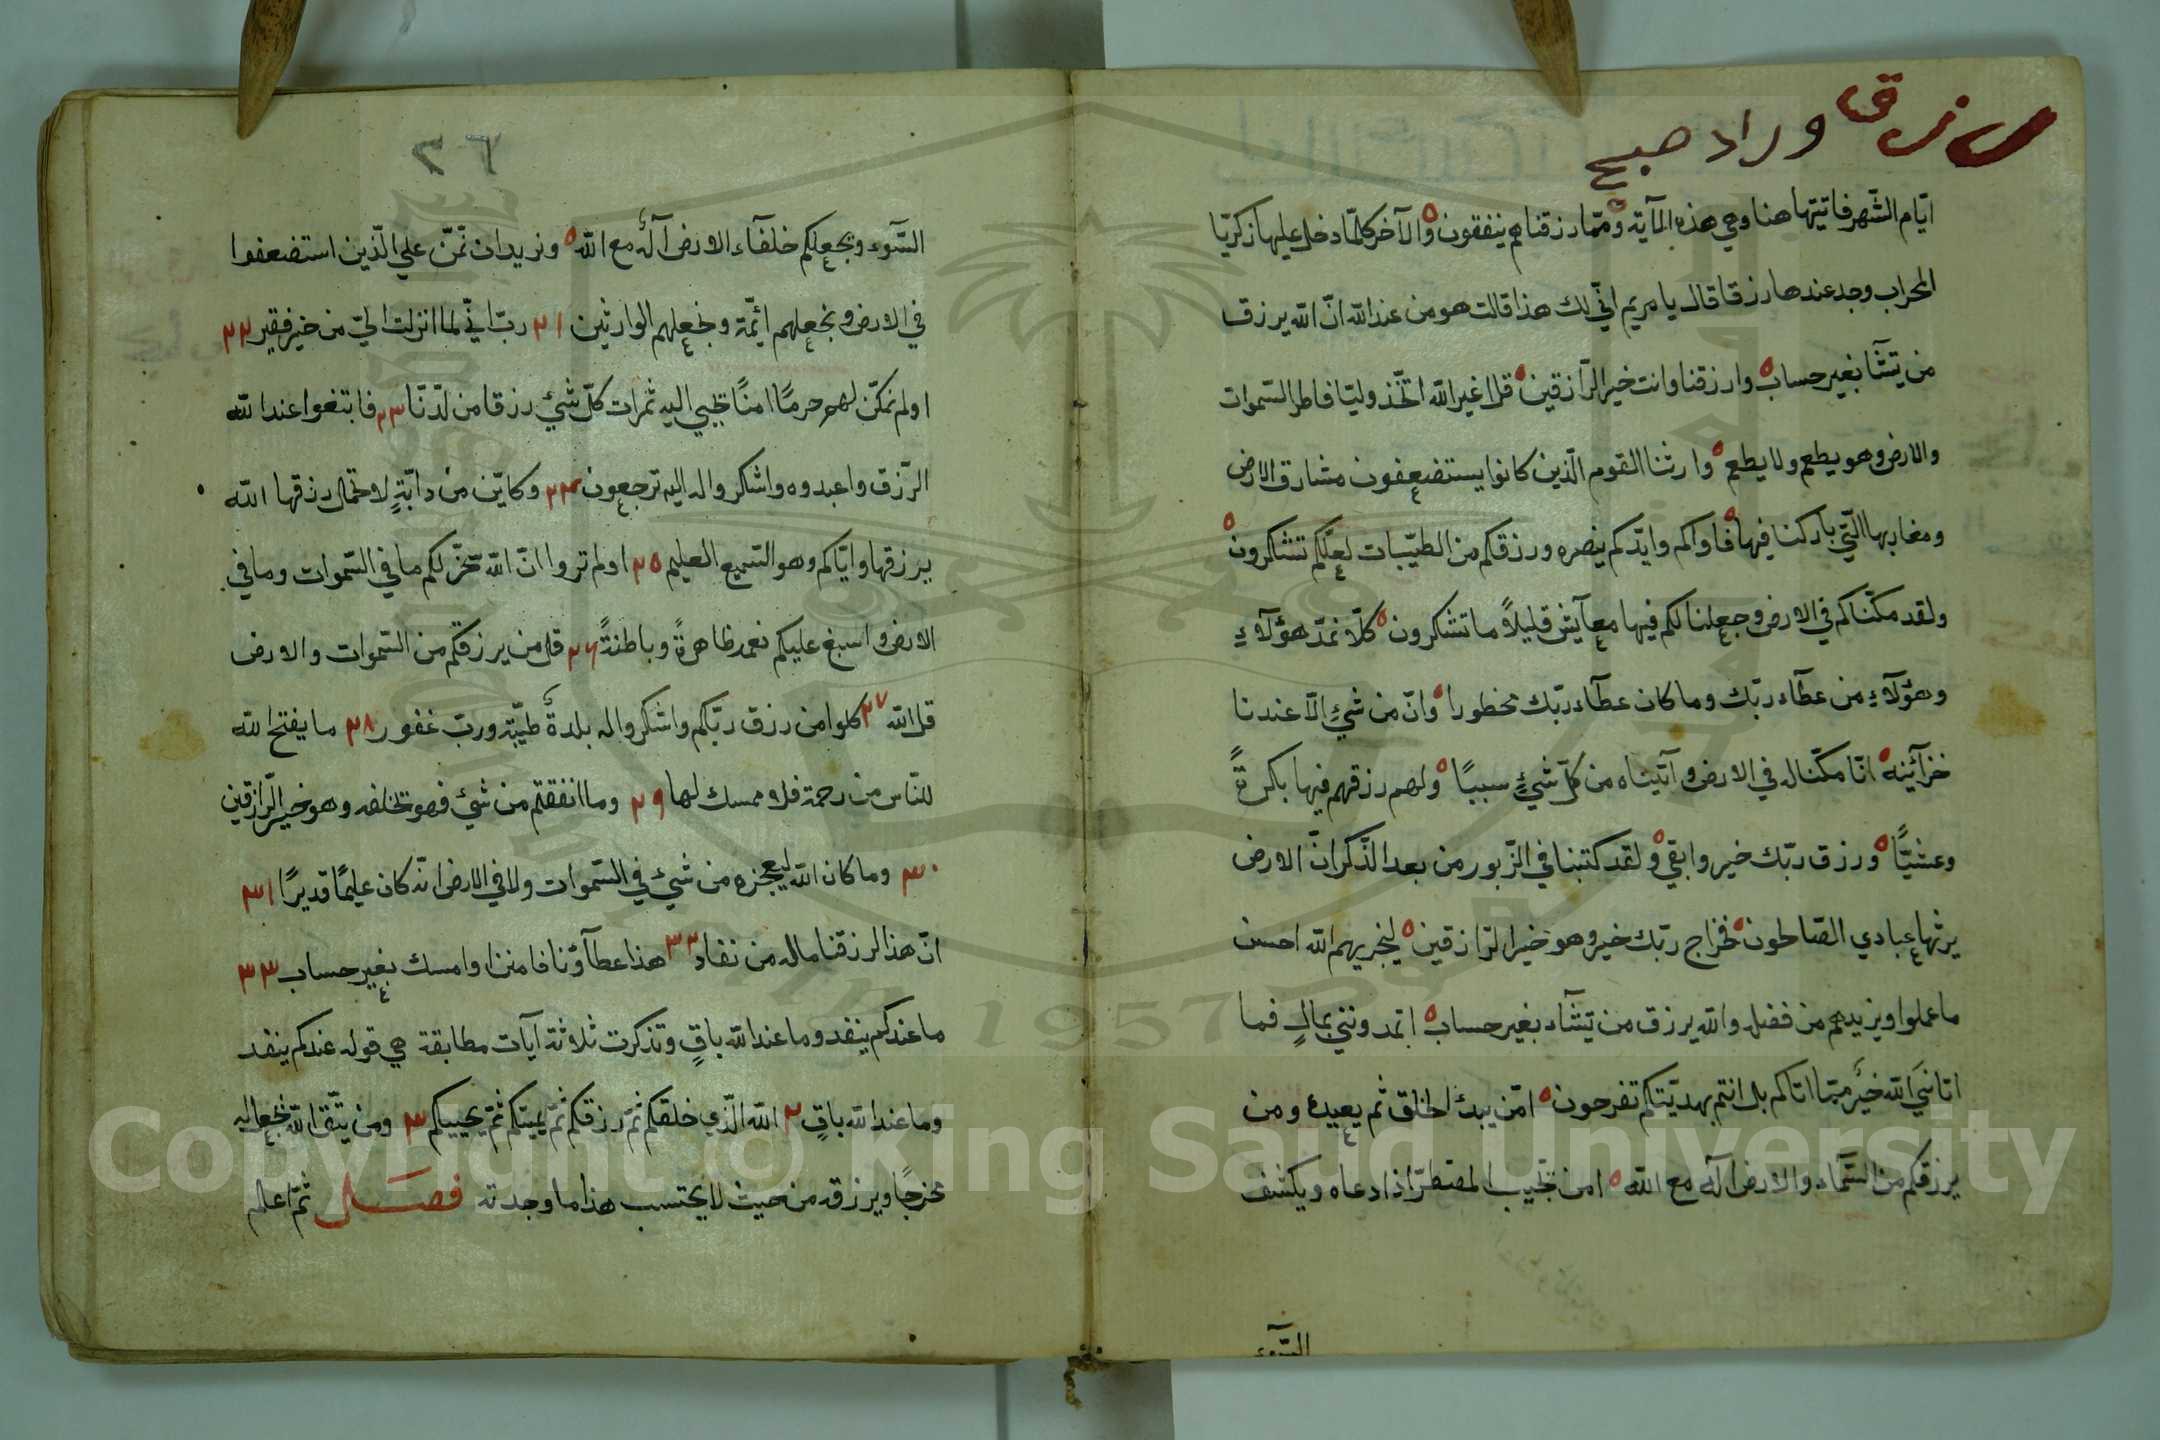 وراد صبح
ايّام الشّهر فاتيتها هنا وهي هذه الآية وممّا رزقناهم ينفقون والآخر كلمّا دخل عليها زكريّا
المحراب وجد عندها رزقا قال يا مريم انّي لك هذا قالت هو من عند الله انّ الله يرزق
من يشآ بغير حساب وارزقنا وانت خير الرّازقين قل اغير الله اتّخذ وليّا فاطر السّموات
والارض وهو يطعم ولا يطعم وارثنا القوم الّذين كانوا يستضعفون مشارق الارض
ومغاربها الّتي باركنا فيها فاواكم وايّدكم بنصره ورزقكم من الطيّبات لعلّكم تشكرون
ولقد مكّنّاكم في الارض وجعلنا لكم فيها معآيش قليلاً ما تشكرون كلّا نمدّ هؤلآء
وهؤلآء من عطآء ربّك وما كان عطآء ربّك محظورا وانّ من شيء الّا عندنا
خزآئنه انّا مكّنّا له في الارض وآتيناه من كلّ شيء سببًا ولهم رزقهم فيها بكرةً
وعشيًّا ورزق ربّك خير وابقي ولقد كتبنا في الزّبور من بعد الذّكر انّ الارض
يرثها عبادي الصّالحون فخراج ربّك خير وهو خير الرّازقين ليجزيهم الله احسن
ما عملوا ويزيدهم من فضله والله يرزق من يشآء بغير حساب اتمدّونني بمالٍ فما
اتاني الله خيرٌ ممّا اتاكم بل انتم بهديّتكم تفرحون امّن يبدؤ الخلق ثم يعيده ومن
يرزقكم من السّمآء والارض آله مع الله امن يجيب المضطرّ اذا دعاه ويكشف
السّوء
٢٦
السّوء ويجعلكم خلفآء الارض آله مع الله ونريد ان نمنّ علي الّذين استضعفوا
في الارض ونجعلهم ائمّة ونجعلهم الوارثين ٢١ ربّ انّي لما انزلت اليّ من خير فقير ٢٢
اولم نمكّن لهم حرمًا امنًا تجبي اليه ثمرات كلّ شيء رزقا من لدنّا ٢٣ فابتغوا عند الله
الرّزق واعبدوه واشكروا له اليه ترجعون ٢٤ وكايّن من دابّةٍ لا تحمل رزقها الله
يرزقها وايّاكم وهو السّميع العليم ٢٥ اولم تروا انّ الله سخّر لكم ما في السّموات وما في
الارض واسبغ عليكم نعمه ظاهرةً وباطنةً ٢٦ قل من يرزقكم من السّموات والارض
قل الله ٢٧ كلوا من رزق ربّكم واشكروا له بلدةٌ طيّبة وربّ غفور ٢٨ ما يفتح الله
للنّاس من رحمة فلا ممسك لها ٢٩ وما انفقتم من شيء فهو يخلفه وهو خير الرّازقين
٣٠ وما كان الله ليعجزه من شيء في السّموات ولا في الارض انّه كان عليمًا قديرًا ٣١
انّ هذا لرزقنا ماله من نفاد ٣٢ هذا عطآؤنا فامنن او امسك بغير حساب ٣٣
ما عندكم ينفد وما عند الله باقٍ وتذكرت ثلاثة آيات مطابقة هي قوله عندكم ينفد
وما عند الله باقٍ ٢ الله الّذي خلقكم ثمّ رزقكم ثمّ يميتكم ثمّ يحييكم ٣ ومن يتّق الله يجعل له
مخرجًا ويرزقه من حيث لا يحتسب هذا ما وجدته فصل ثمّ اعلم
Copyright © King Saud University
1957